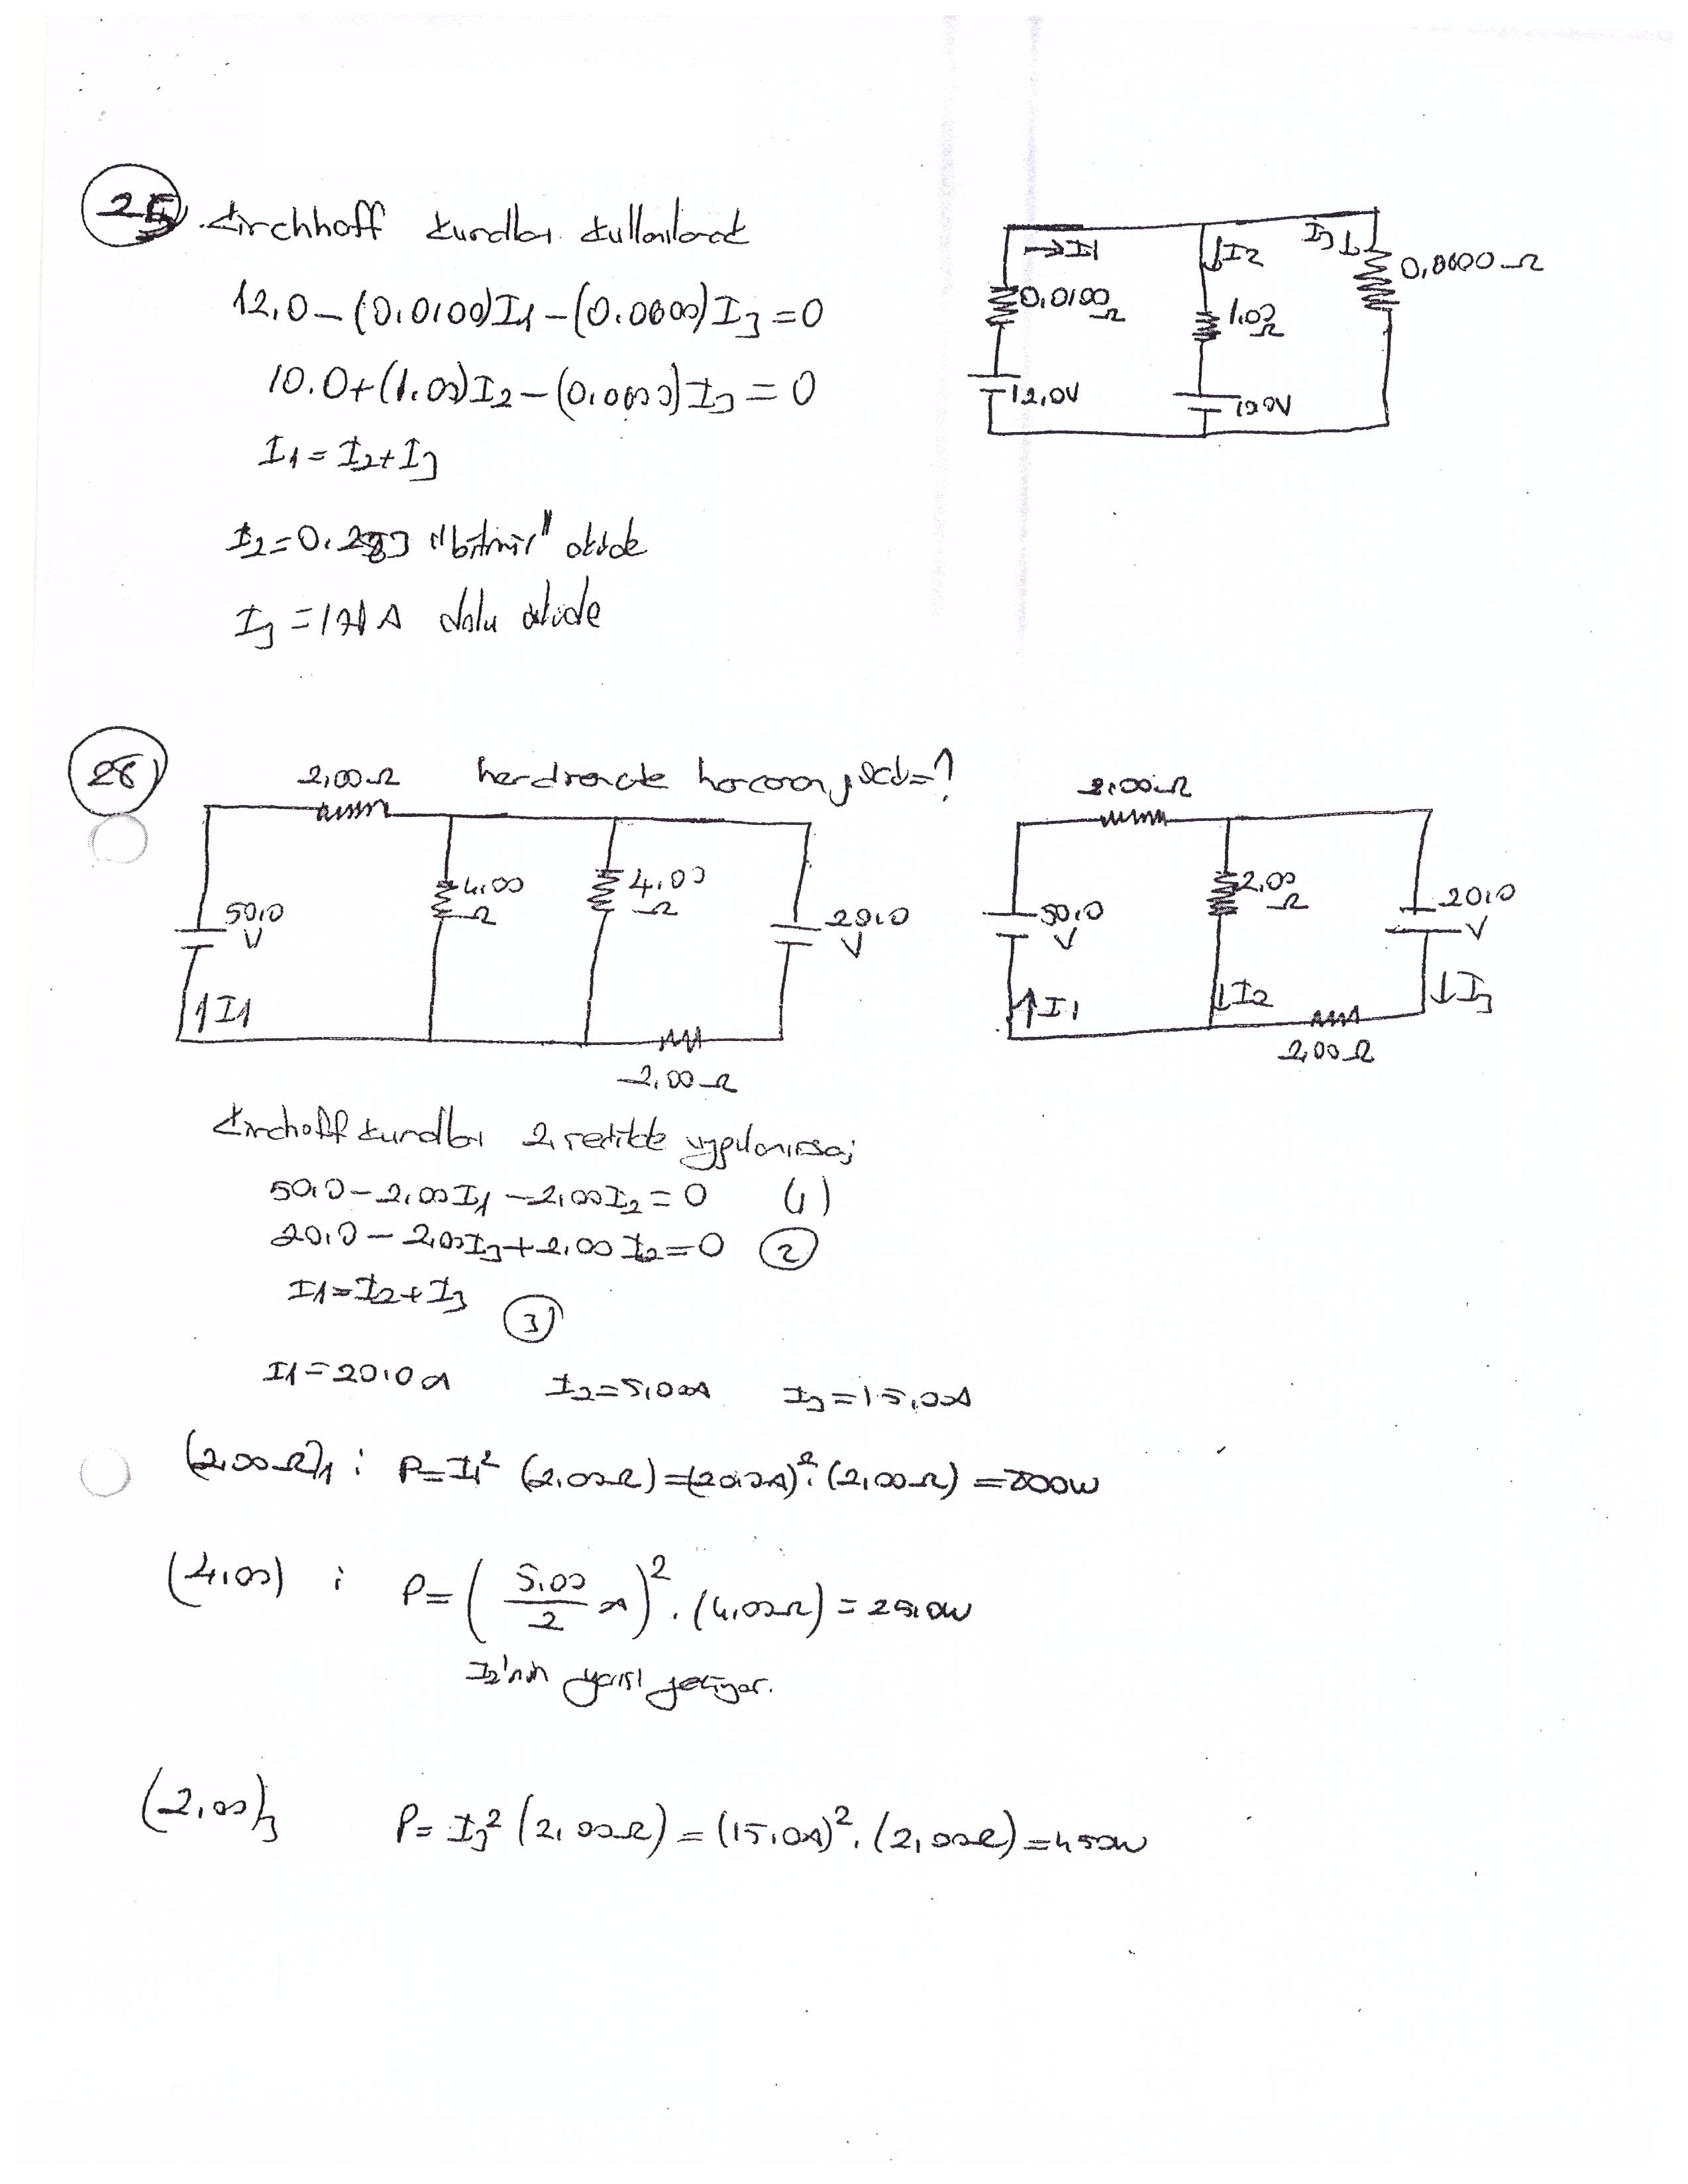 25
Kirchhoff kuralları kullanılarak
12,0-(0,0100)I1-(0.0600)I3=0
10.0+(1.00)I2-(0.0600)I3=0
I1=I2+I3
I2=0.283 "bitmiş" aküde
I3=171A dolu aküde
→I1
↓I2
I3↓
0,0600Ω
0,0100Ω
1.00Ω
12,0V
10.0V
26
herdirençte harcanan güç=?
2,00Ω
50,0V
4,00Ω
4,00Ω
20,0V
↑I1
2,00Ω
2,00Ω
50,0V
2,00Ω
20,0V
↑I1
↓I2
↓I3
2,00Ω
Kirchoff kuralları 2. şekilde uygulanırsa;
50,0-2,00I1-2,00I2=0 (1)
20,0-2,00I3+2,00I2=0 (2)
I1=I2+I3 (3)
I1=20,0A I2=5,00A I3=15,0A
(2,00Ω)1 : P=I1² (2,00Ω)=(20,0A)².(2,00Ω)=800W
(4,00) : P=(5,00/2 A)².(4,00Ω)=25,0W
I2'nin yarısı geliyor.
(2,00)3 P=I3²(2,00Ω)=(15,0A)².(2,00Ω)=450W